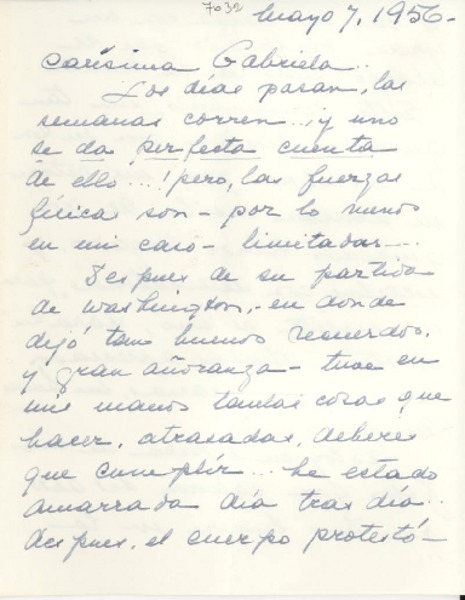 7032
Mayo 7, 1956-
Carísima Gabriela..
Los días pasan, las
semanas corren...¡y uno
se da perfecta cuenta
de ello...! pero, las fuerzas
físicas son - por lo menos
en mi caso - limitadas....
Despues de su partida
de Washington, - en donde
dejó tan buenos recuerdos,
y gran añoranza - tuve en
mis manos tantas cosas que
hacer, atrasadas, deberes
que cumplir... he estado
amarrada día tras día..
despues, el cuerpo protestó-